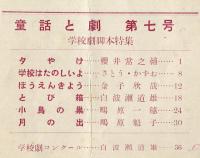 童話と劇 第七号
学校劇脚本特集
夕やけ 櫻井常之補 1
学校はたのしいよ さとう・かずお 8
ぼうえんきよう 金子欣哉 12
とび箱 白波瀬道雄 18
小鳥の巣 鴫原一穂 24
月の出 鴫原龍子 30
学校劇コンクール 白波瀬道雄 36